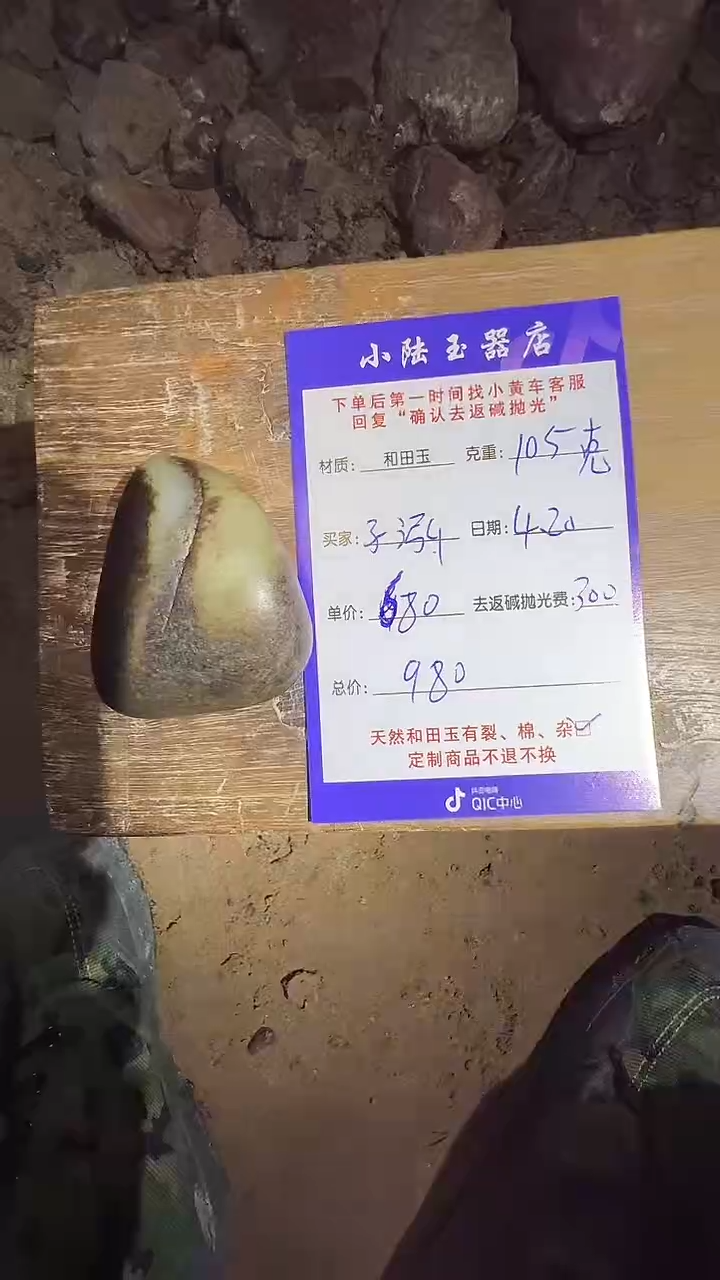 小陆玉器店
下单后第一时间找小黄车客服
回复“确认去返碱抛光”
材质: 和田玉 克重: 105克
买家: 日期: 4.20
单价: 680 去返碱抛光费: 300
总价: 980
天然和田玉有裂、棉、杂☑
定制商品不退不换
抖音电商
QIC中心